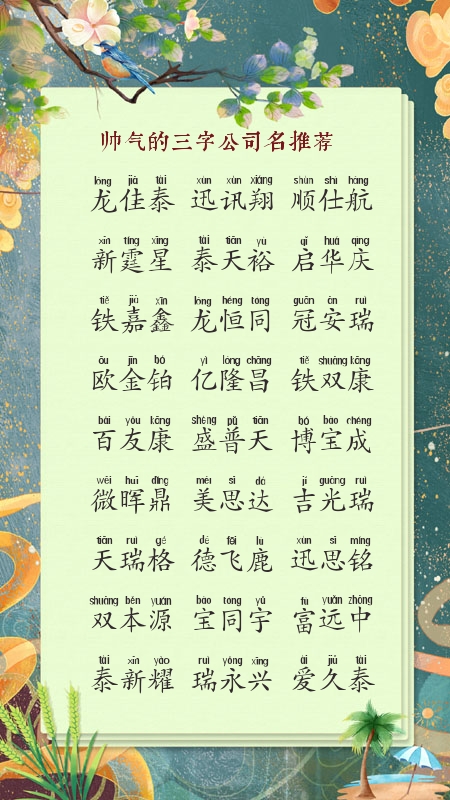 帅气的三字公司名推荐
lóng jiā tài xùn xùn xiáng shùn shì háng
龙佳泰 迅讯翔 顺仕航
xīn tíng xīng tài tiān yù qǐ huá qìng
新霆星 泰天裕 启华庆
tiě jiā xīn lóng héng tóng guān ān ruì
铁嘉鑫 龙恒同 冠安瑞
ōu jīn bó yì lóng chāng tiě shuāng kāng
欧金铂 亿隆昌 铁双康
bǎi yǒu kāng shèng pǔ tiān bó bǎo chéng
百友康 盛普天 博宝成
wēi huī dǐng měi sī dá jí guāng ruì
微晖鼎 美思达 吉光瑞
tiān ruì gé dé fēi lù xùn sī míng
天瑞格 德飞鹿 迅思铭
shuāng běn yuán bǎo tóng yǔ fù yuǎn zhōng
双本源 宝同宇 富远中
tài xīn yào ruì yǒng xīng ài jiǔ tài
泰新耀 瑞永兴 爱久泰